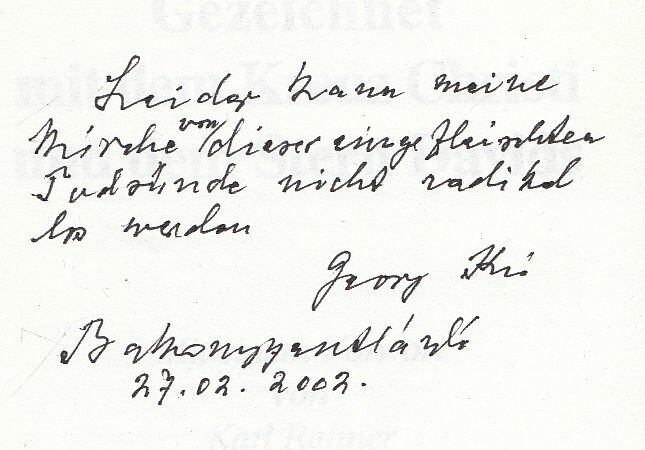 Gezeichnet
mit dem Kreuz Christi
Leider kann meine
Kirche von dieser eingefleischten
Todsünde nicht radikal
los werden
Georg Kis
Bakonyszentlászló
27.02.2002.
von
Karl Rahner